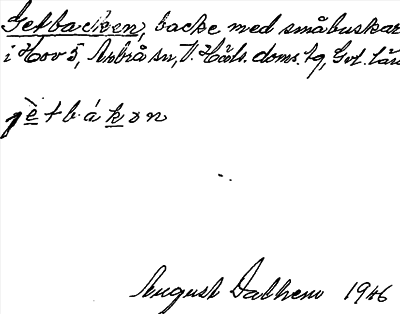 Getbacken, backe med småbuskar
i Hov 5, Arbrå sn, V. Häls. doms. tg, Gvl. län
jètbákɜn
August Dalhem 1946